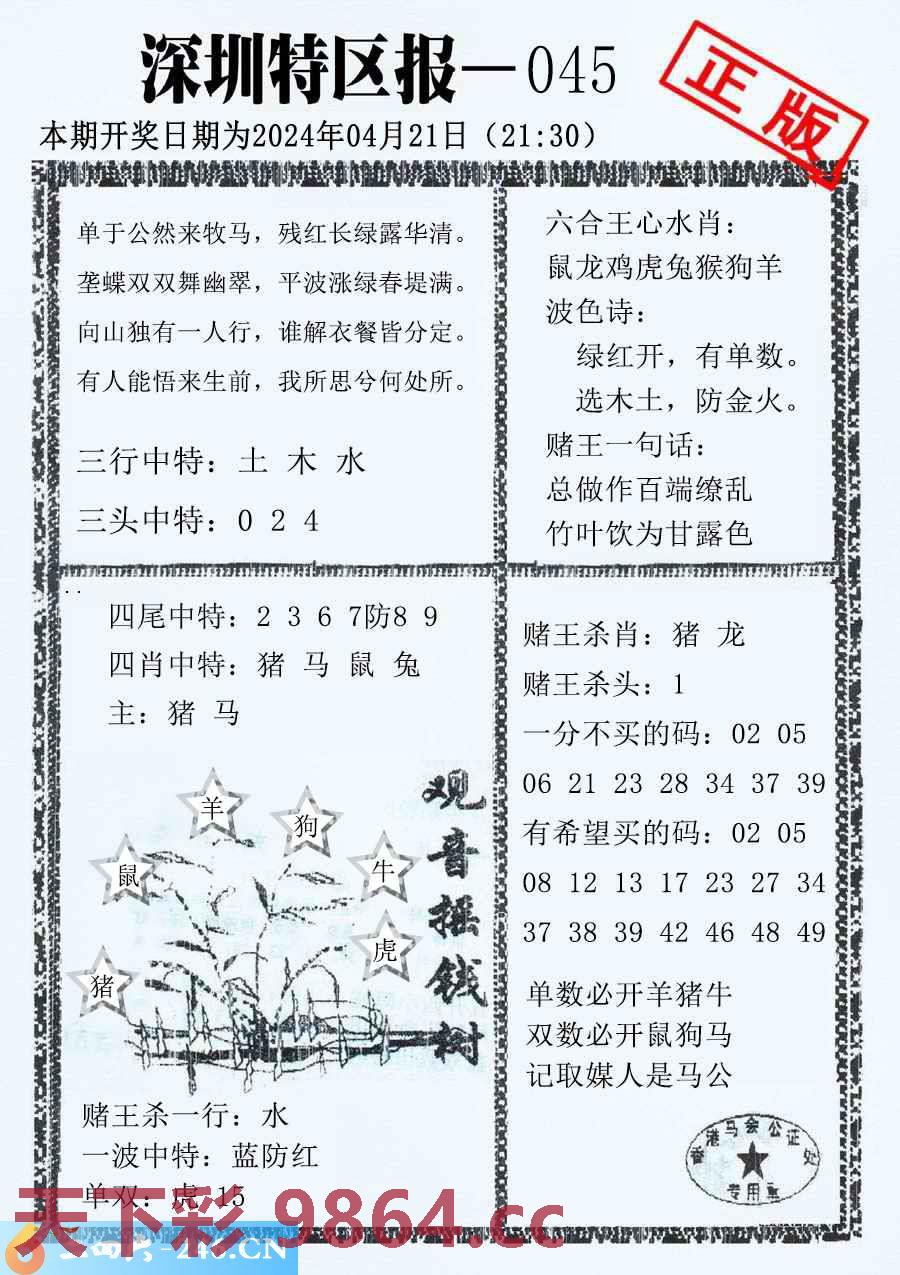 深圳特区报—045
正版
本期开奖日期为2024年04月21日（21:30）
单于公然来牧马，残红长绿露华清。
垄蝶双双舞幽翠，平波涨绿春堤满。
向山独有一人行，谁解衣餐皆分定。
有人能悟来生前，我所思兮何处所。
三行中特：土 木 水
三头中特：0 2 4
六合王心水肖：
鼠龙鸡虎兔猴狗羊
波色诗：
绿红开，有单数。
选木土，防金火。
赌王一句话：
总做作百端缭乱
竹叶饮为甘露色
四尾中特：2 3 6 7防8 9
四肖中特：猪 马 鼠 兔
主：猪 马
羊
狗
鼠
牛
虎
猪
观音摇钱树
赌王杀一行：水
一波中特：蓝防红
单双：虎 15
赌王杀肖：猪 龙
赌王杀头：1
一分不买的码：02 05
06 21 23 28 34 37 39
有希望买的码：02 05
08 12 13 17 23 27 34
37 38 39 42 46 48 49
单数必开羊猪牛
双数必开鼠狗马
记取媒人是马公
香港马会公证处
专用章
天下彩 9864.cc
-246.CN